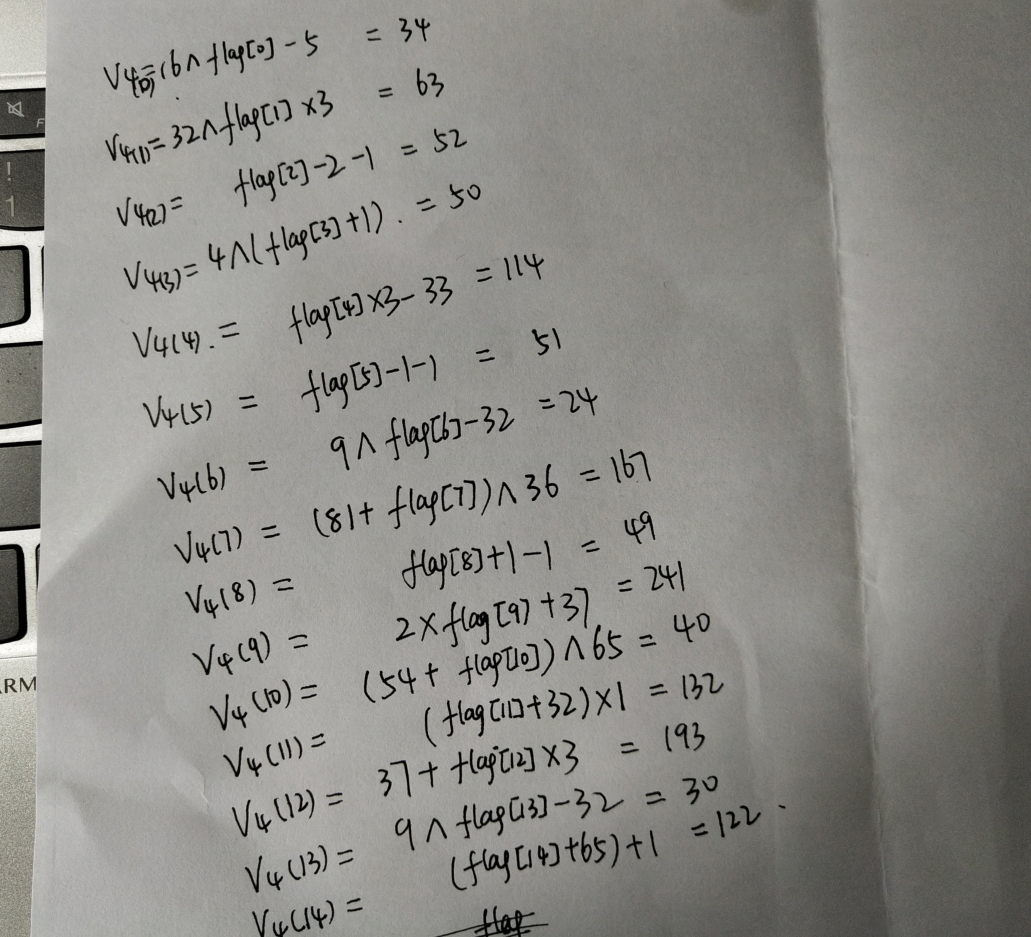 V4(0)=16∧flag[0]-5 = 34
V4(1)=32∧flag[1]×3 = 63
V4(2)= flag[2]-2-1 = 52
V4(3)=4∧(flag[3]+1). = 50
V4(4).= flag[4]×3-33 =114
V4(5) = flag[5]-1-1 = 51
V4(6) = 9∧flag[6]-32 =24
V4(7) = (81+flag[7])∧36 =167
V4(8) = flag[8]+1-1 = 49
V4(9) = 2×flag[9]+37 =241
V4(10)= (54+flag[10])∧65= 40
V4(11)= (flag[11]+32)×1 =132
V4(12)= 37+flag[12]×3 = 193
V4(13)= 9∧flag[13]-32 = 30
V4(14)= (flag[14]+65)+1 =122.
flag
!
1
F
ARM